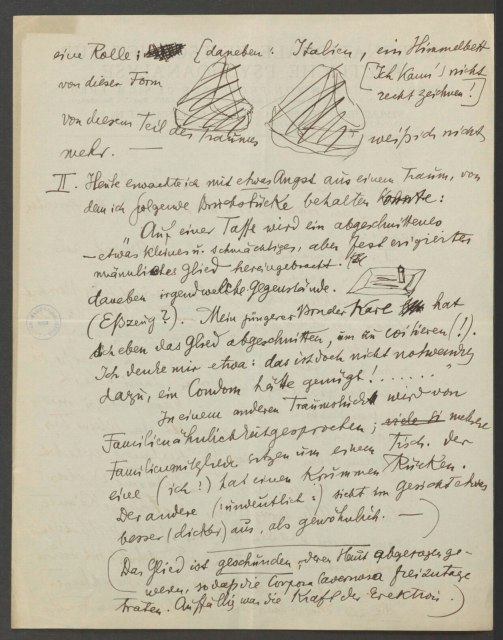 eine Rolle; (daneben: Italien, ein Himmelbett
von dieser Form [Ich kann's nicht
recht zeichnen!]
von diesem Teil des Traumes weiß ich nicht
mehr. —
II. Heute erwachte ich mit etwas Angst aus einem Traum, von
dem ich folgende Bruchstücke behalten konnte:
"Auf einer Tasse wird ein abgeschnittenes
– etwas kleines u. schmächtiges, aber fest erigiertes
männliches Glied hereingebracht.
daneben irgendwelche Gegenstände.
(Eßzeug?). Mein jüngerer Bruder Karl hat
sich eben das Glied abgeschnitten, um zu coitieren (!).
Ich denke mir etwa: das ist doch nicht notwendig
dazu, ein Condom hätte genügt! ...... "
In einem anderen Traumstück wird von
Familienähnlichkeit gesprochen; mehrere
Familienmitglieder sitzen um einen Tisch. der
eine (ich!) hat einen krummen Rücken.
Der andere (undeutlich:) sieht im Gesicht etwas
besser (dicker) aus, als gewöhnlich. —
(Das Glied ist geschunden, deren Haut abgezogen ge-
wesen, sodaß die Corpora cavernosa frei zutage
traten. Auffällig war die Kraft der Erektion.)